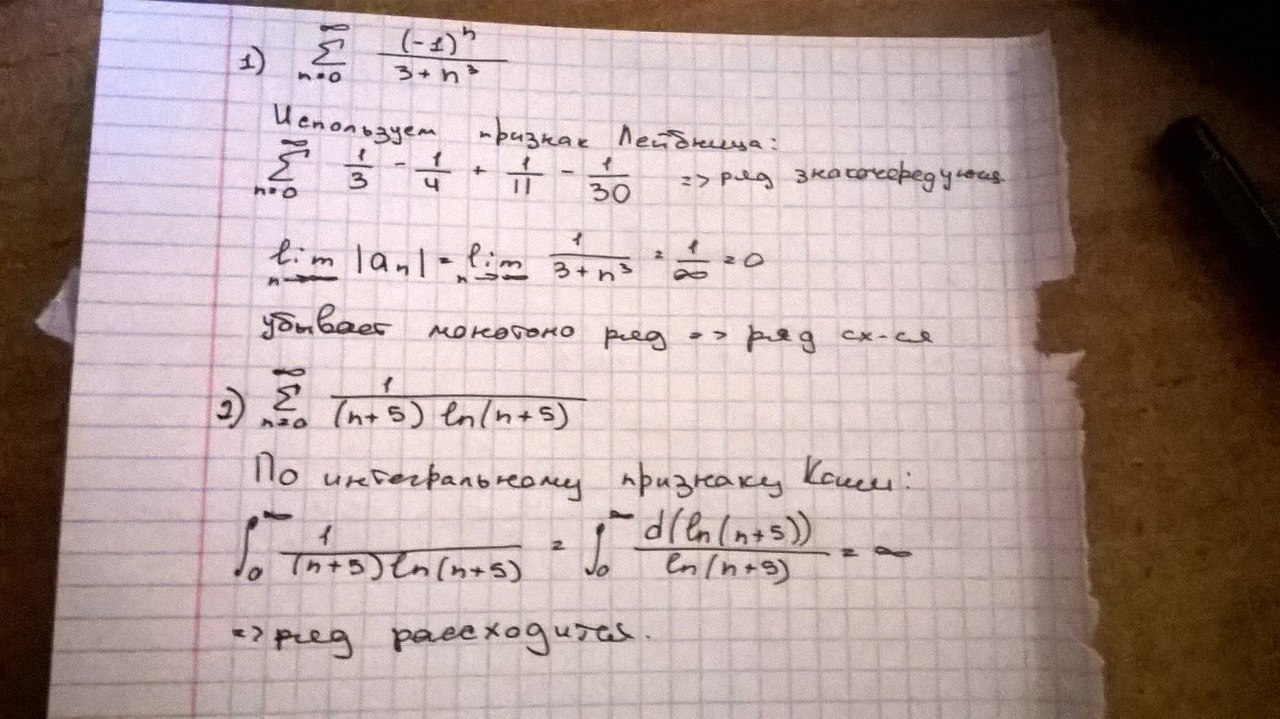 1) ∑_{n=0}^{∞} (-1)^n / (3 + n^3)
Используем признак Лейбница:
∑_{n=0}^{∞} 1/3 - 1/4 + 1/11 - 1/30 => ряд знакочередующ
lim_{n→∞} |a_n| = lim_{n→∞} 1 / (3 + n^3) = 1/∞ = 0
убывает монотоно ряд => ряд сх-ся
2) ∑_{n=0}^{∞} 1 / ((n+5) ln(n+5))
По интегральному признаку Коши:
∫_0^∞ 1 / ((n+5) ln(n+5)) = ∫_0^∞ d(ln(n+5)) / ln(n+5) = ∞
=> ряд рассходится.